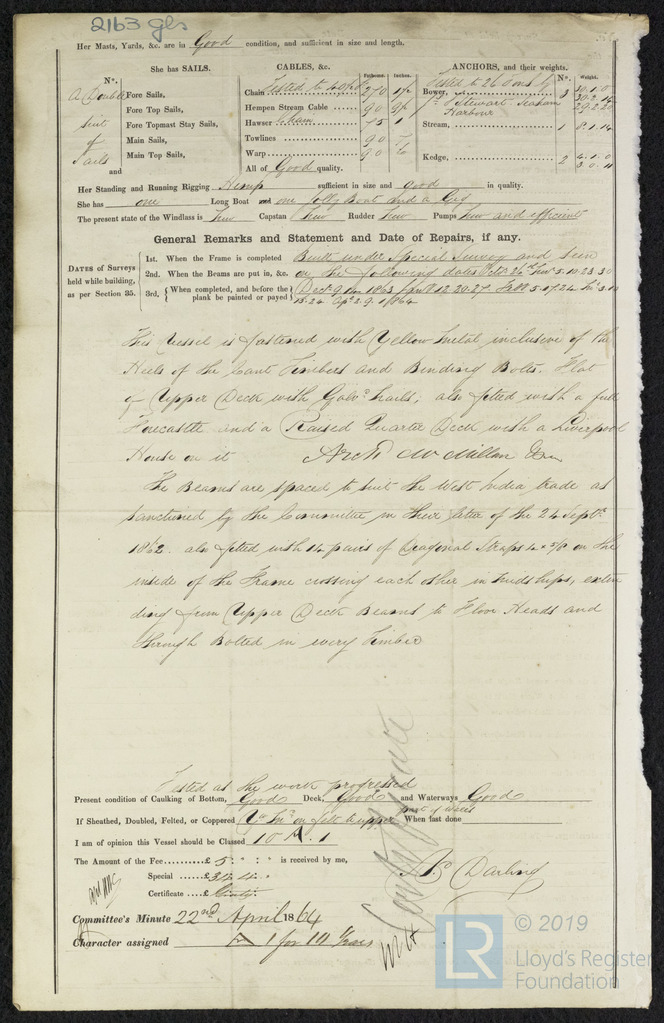 2163 gls
Her Masts, Yards, &c. are in Good condition, and sufficient in size and length.
She has SAILS.
CABLES, &c.
Fathoms. Inches.
ANCHORS, and their weights.
No. Weight.
No.
A Double
suit
of
Sails
and
Fore Sails,
Fore Top Sails,
Fore Topmast Stay Sails,
Main Sails,
Main Top Sails,
Tested to
Chain
Hempen Stream Cable 90
Hawser Chain 75 1
Towlines 90
Warp 90
All of Good quality.
Tested to 26 Tons
Bower, 3 30.1.0
Stewarts Seaham
Harbour
Stream, 1 8.1.14
Kedge, 2 4.1.0
Her Standing and Running Rigging Hemp sufficient in size and good in quality.
She has one Long Boat and one Jolly Boat and a Gig
The present state of the Windlass is New Capstan New Rudder New Pumps New and efficient
General Remarks and Statement and Date of Repairs, if any.
DATES of Surveys
held while building,
as per Section 35.
1st. When the Frame is completed Built under Special Survey and seen
2nd. When the Beams are put in, &c. on the following dates Octr 26th Novr 5.10.23.30
3rd. When completed, and before the
plank be painted or payed
1863 Janr 12.20.27 Feb 5.17.24
1864
This Vessel is fastened with Yellow Metal inclusive of the
Heels of the Cant Timbers and Binding Bolts. Flat
of Upper Deck with Galvd Nails; also fitted with a full
Forecastle and a Raised Quarter Deck with a Liverpool
House on it Archd McMillan & Son
The Beams are spaced to suit the West India trade as
sanctioned by the Committee in their letter of the 24 Septr
1862. also fitted with 14 pairs of Diagonal Straps 4 x 5/8 on the
inside of the Frame crossing each other in midships, exten
ding from Upper Deck Beams to Floor Heads and
through Bolted in every Timber
Tested as the work progressed
Present condition of Caulking of Bottom, Good Deck, Good and Waterways Good
If Sheathed, Doubled, Felted, or Coppered Y. M. on felt to upper part of Wales When last done
I am of opinion this Vessel should be Classed 10 A. 1
The Amount of the Fee £ 5 : : is received by me,
Special £
Certificate £ Gratis
Darling
Committee's Minute 22nd April 1864
Character assigned A 1 for 10 Years
LR
© 2019
Lloyd's Register
Foundation